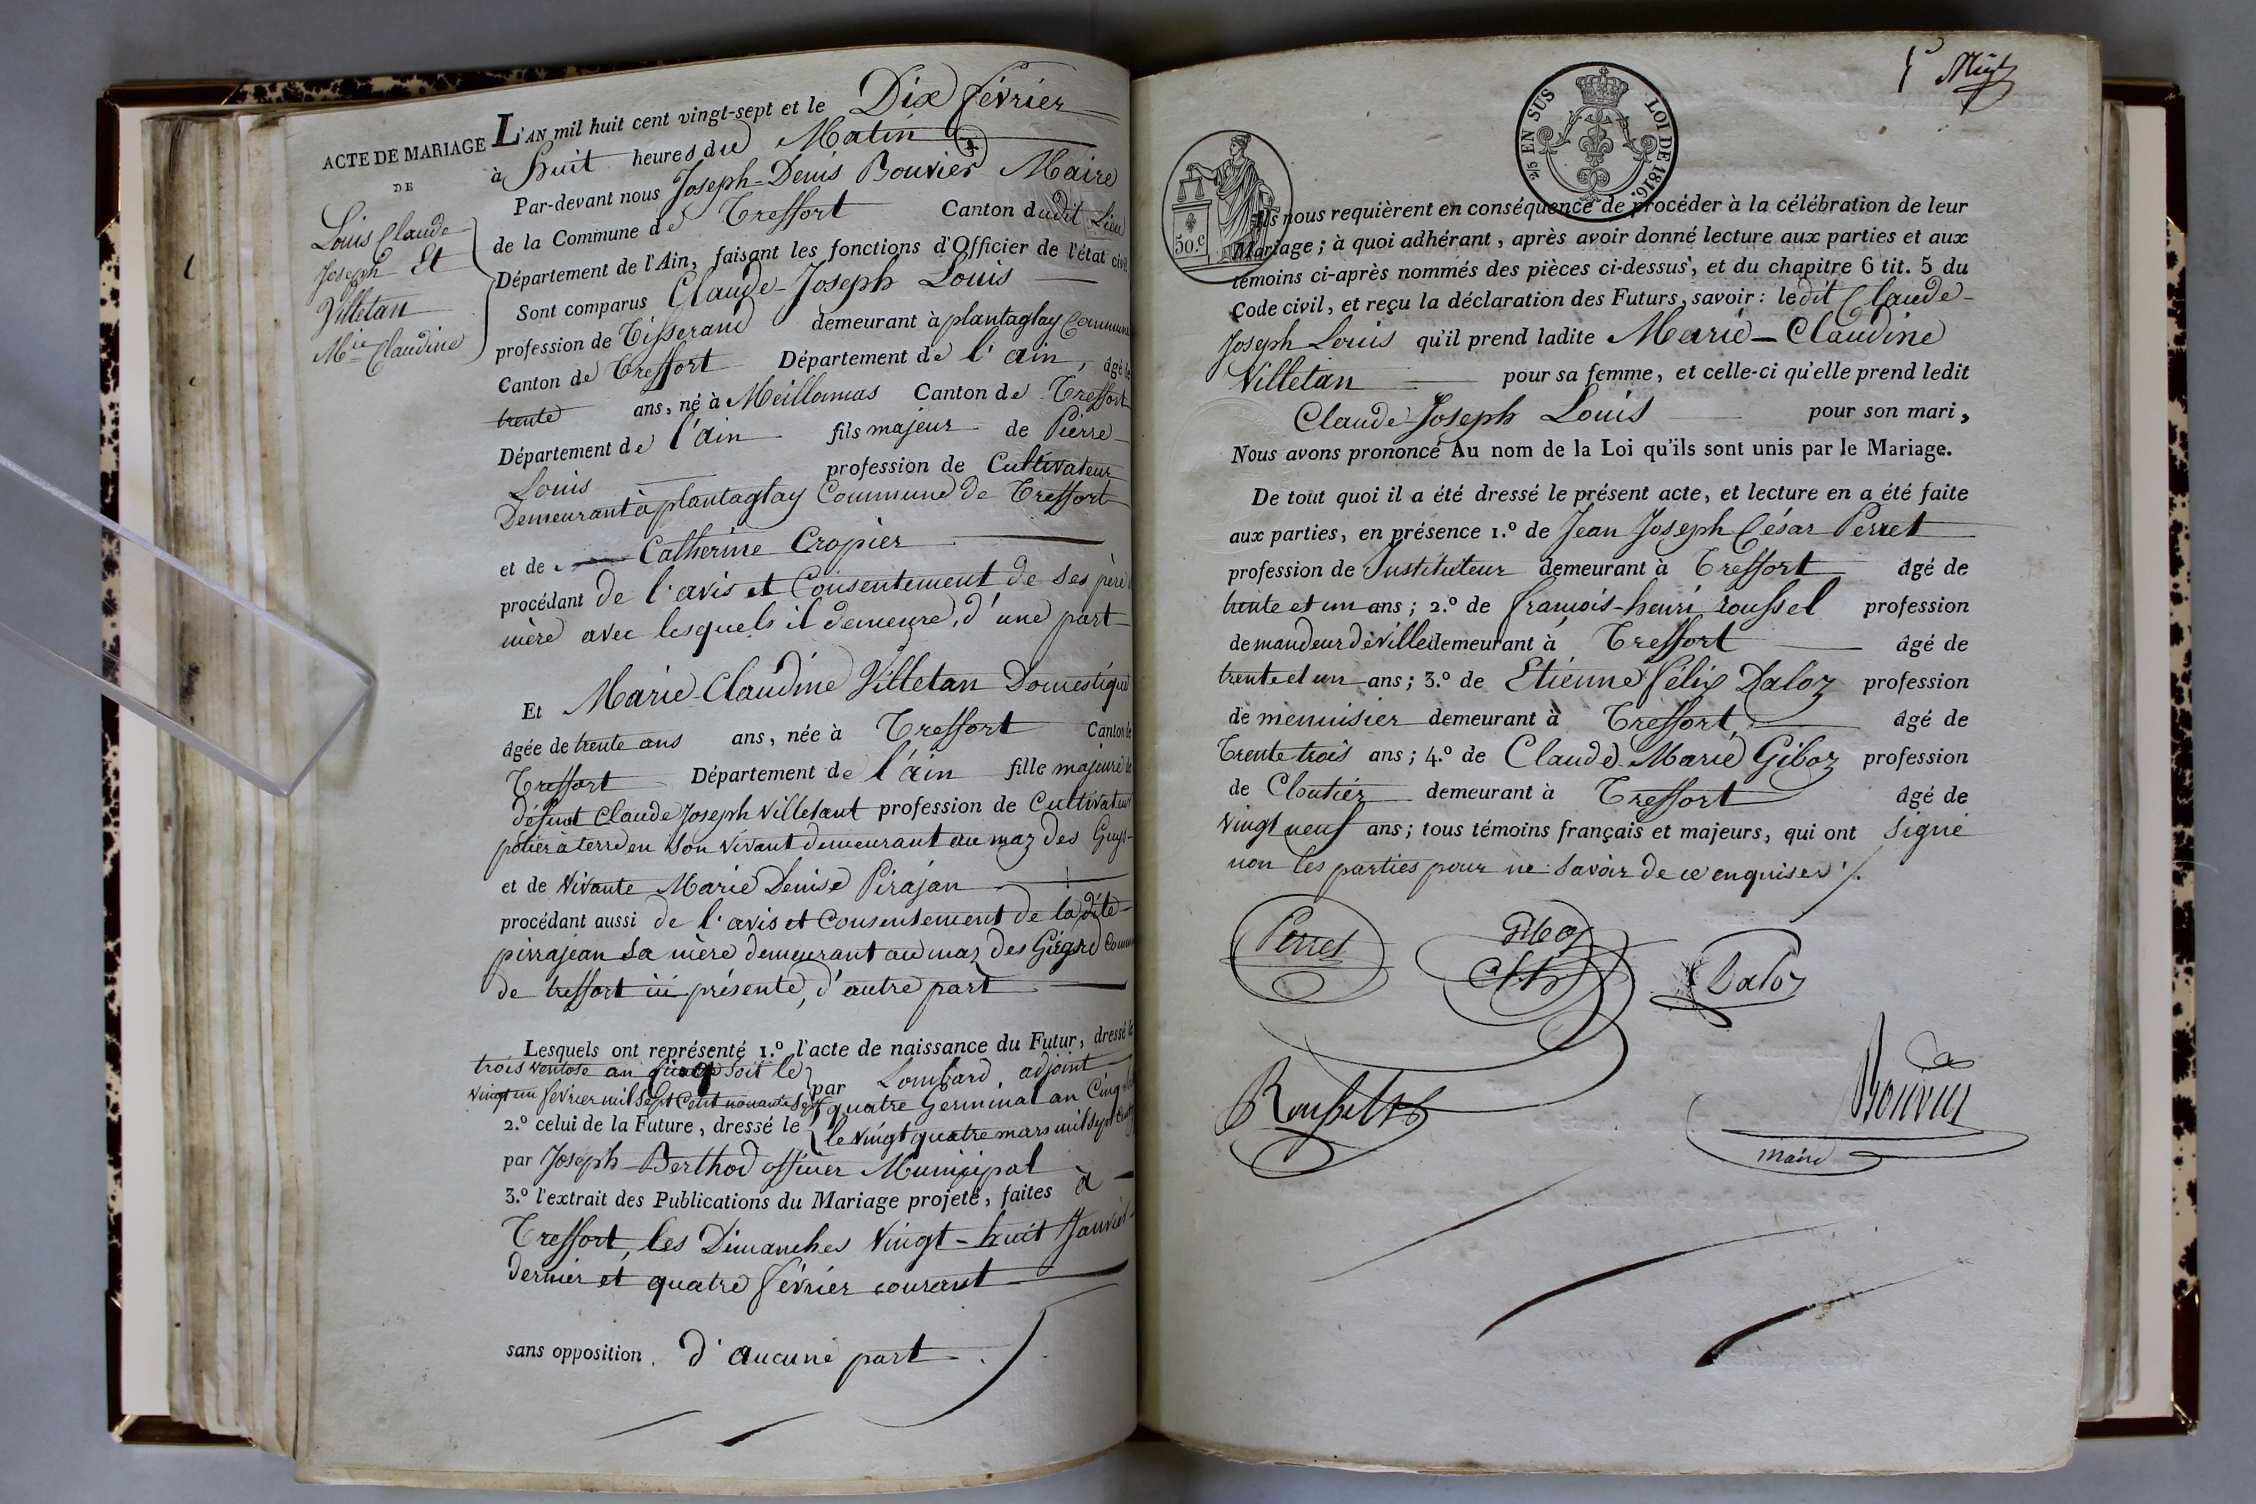 ACTE DE MARIAGE
DE
Louis Claude
Joseph Et
Villetan
Mie Claudine
L'AN mil huit cent vingt-sept et le Dix février
à huit heures du Matin
Par-devant nous Joseph-Denis Bouvier Maire
de la Commune de Treffort Canton dudit Lieu
Département de l'Ain, faisant les fonctions d'Officier de l'état civil
Sont comparus Claude-Joseph Louis
profession de Tisserand demeurant à plantaglay Commune
Canton de Treffort Département de l'ain, âgé de
trente ans, né à Meillonnas Canton de Treffort
Département de l'ain fils majeur de Pierre
Louis profession de Cultivateur
Demeurant à plantaglay Commune de Treffort
et de Catherine Cropier
procédant de l'avis et Consentement de ses père
mère avec lesquels il demeure, d'une part
Et Marie-Claudine Villetan Domestique
âgée de trente ans ans, née à Treffort Canton de
Treffort Département de l'ain fille majeure de
défunt Claude Joseph Villetant profession de Cultivateur
potier à terre en son vivant demeurant au maz des Guyt
et de vivante Marie Denise Pirajan
procédant aussi de l'avis et Consentement de la dite
pirrajean sa mère demeurant au maz des commune
de treffort ici présente, d'autre part
Lesquels ont représenté 1.º l'acte de naissance du Futur, dressé le
trois ventose an cinq soit le par Lombard, adjoint
vingt un février mil sept cent nonante sept quatre Germinal an Cinq
2.º celui de la Future, dressé le le vingt quatre mars mil sept cent
par Joseph Berthod officier Municipal
3.º l'extrait des Publications du Mariage projeté, faites à
Treffort, les Dimanches vingt-huit Janvier
dernier et quatre février courant
sans opposition. d'aucune part
2/5 EN SUS LOI DE 1816.
50.c
Ils nous requièrent en conséquence de procéder à la célébration de leur
Mariage; à quoi adhérant, après avoir donné lecture aux parties et aux
témoins ci-après nommés des pièces ci-dessus, et du chapitre 6 tit. 5 du
Code civil, et reçu la déclaration des Futurs, savoir: ledit Claude-
Joseph Louis qu'il prend ladite Marie-Claudine
Villetan pour sa femme, et celle-ci qu'elle prend ledit
Claude-Joseph Louis pour son mari,
Nous avons prononcé Au nom de la Loi qu'ils sont unis par le Mariage.
De tout quoi il a été dressé le présent acte, et lecture en a été faite
aux parties, en présence 1.º de Jean Joseph César Perret
profession de Instituteur demeurant à Treffort âgé de
trente et un ans; 2.º de françois-henri roussel profession
de mandeur de ville demeurant à Treffort âgé de
trente et un ans; 3.º de Etienne Félix Daloz profession
de menuisier demeurant à Treffort, âgé de
Trente trois ans; 4.º de Claude-Marie Giboz profession
de Cloutier demeurant à Treffort âgé de
vingt neuf ans; tous témoins français et majeurs, qui ont signé
non les parties pour ne savoir de ce enquises.
Perret
Giboz
Daloz
Roussel
Bouvier
maire